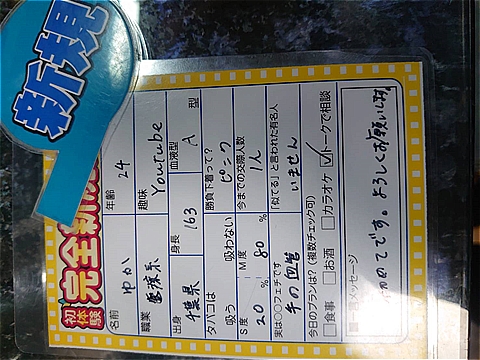 新規
初体験 完全新
名前 ゆか 年齢 24
職業 医療系 趣味 Youtube
出身 千葉県 身長 163 血液型 A 型
タバコは 吸う 吸わない 勝負下着って? ピンク
S度 20 % M度 80 % 今までの交際人数 1人
実は○○フェチです 手の血管 「似てる」と言われた有名人 いません
今日のプランは?(複数チェック可)
□食事 □お酒 □カラオケ ☑トークで相談
メッセージ
初めてです。よろしくお願いします